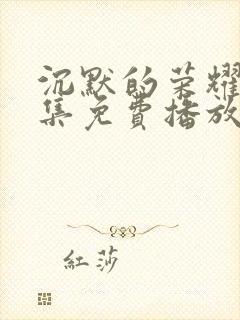 沉默的荣耀
集免費播放
紅莎